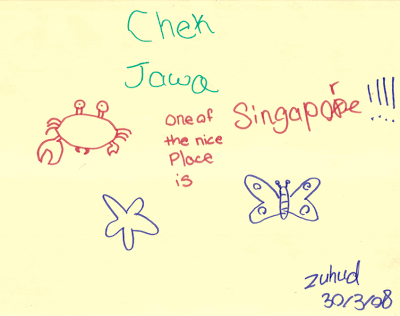 Chek
Jawa
one of
the nice
Place
is
Singapore!!!!
zuhud
30/3/08